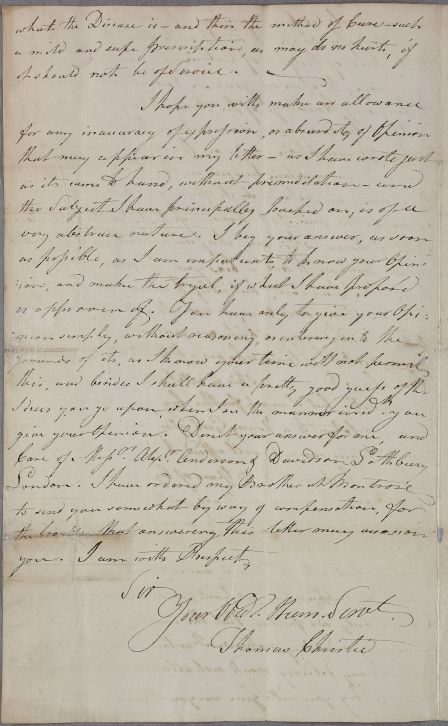 what the Disease is – and then the method of Cure – such
a mild and safe prescription, as may do no hurt, if
it should not be of Service.
I hope you will make an allowance
for any inaccuracy of expression, or absurdity of Opinion
that may appear in my letter – as I have wrote just
as it came to hand, without premeditation – and
the Subject I have principally touched on, is of a
very abstruse nature. I beg your answer, as soon
as possible, as I am impatient to know your Opin-
ion, and make the tryal, if what I have propose
is approven of. You have only to give your Opi-
nion simply, without reasoning, or entering into the
grounds of it, as I know your time will not permit
this, and besides I shall have a pretty good guess of the
Ideas you go upon, when I see the manner in wch you
give your Opinion. Direct your answer for me, and
Care of Messrs. Alexr. Anderson & Davidson Lothbury
London. I have ordered my Brother at Montrose
to send you somewhat by way of compensation, for
the trouble that answering this letter may occasion
you. I am with Respect,
Sir
Your Obdt. Hum. Servt.
Thomas Christie